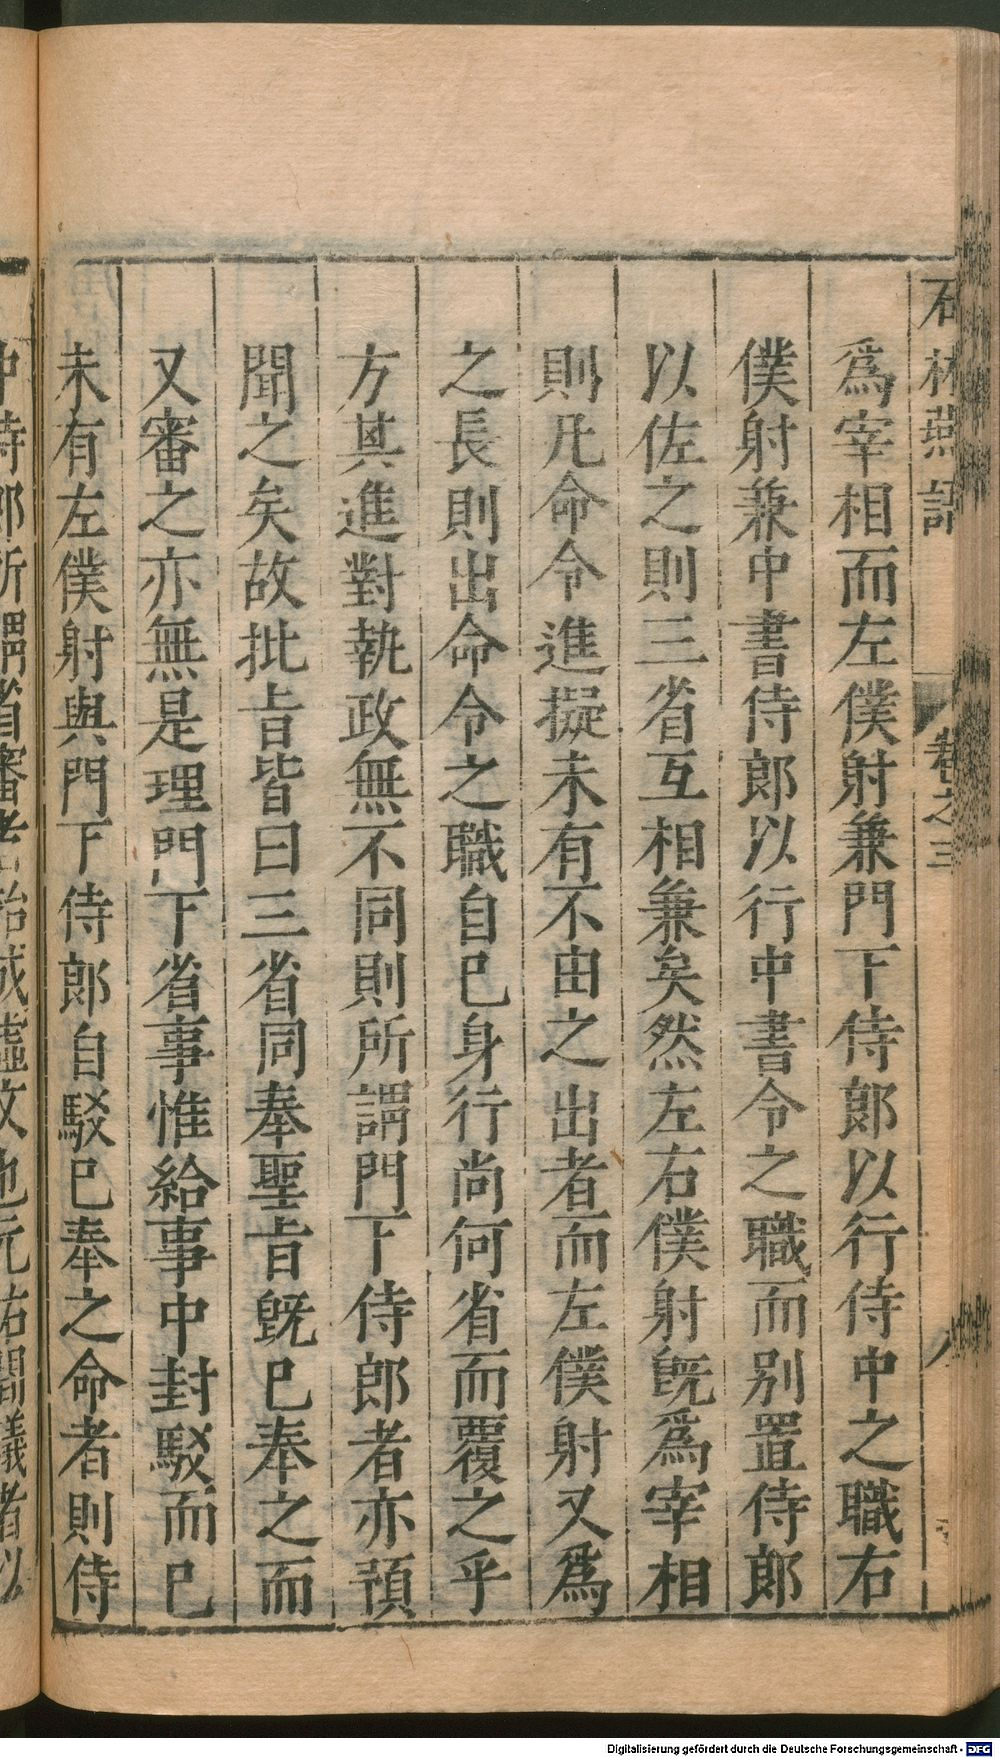 石林燕語 卷之三 八
爲宰相而左僕射兼門下侍郎以行侍中之職右
僕射兼中書侍郎以行中書令之職而别置侍郎
以佐之則三省互相兼矣然左右僕射旣爲宰相
則凡命令進擬未有不由之出者而左僕射又爲
之長則出命令之職自已身行尚何省而覆之乎
方其進對執政無不同則所謂門下侍郎者亦預
聞之矣故批旨皆曰三省同奉聖旨旣已奉之而
又審之亦無是理門下省事惟給事中封駁而已
未有左僕射與門下侍郎自駁已奉之命者則侍
中侍郎所謂省審者殆成虛文也元祐間議者以
Digitalisierung gefördert durch die Deutsche Forschungsgemeinschaft - DFG